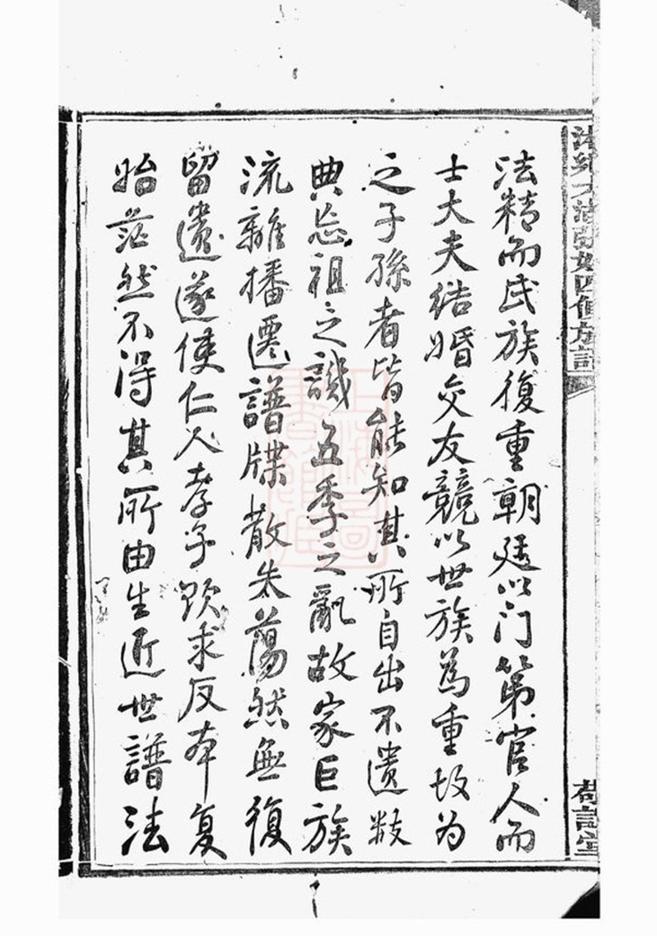 法精而氏族復重朝廷以门第官人而
士大夫结婚交友競以世族為重故为
之子孫者皆能知其所自出不遺数
典忘祖之譏五季之亂故家巨族
流離播遷譜牒散失蕩然無復
留遺遂使仁人孝子欲求反本复
始茫然不得其所由生近世譜法